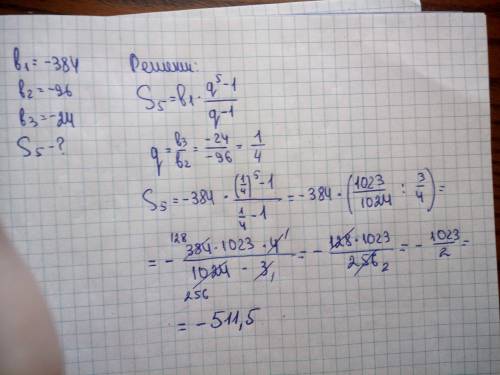 b₁ = -384
b₂ = -96
b₃ = -24
S₅ - ?
Решение:
S₅ = b₁ · (q⁵ - 1)/(q - 1)
q = b₃/b₂ = -24/-96 = 1/4
S₅ = -384 · ((1/4)⁵ - 1)/(1/4 - 1) = -384 · (1023/1024 : 3/4) =
= - (384 · 1023 · 4)/(1024 - 3) = - (128 · 1023)/256 = - 1023/2 =
128 1
256 1 2
= -511,5